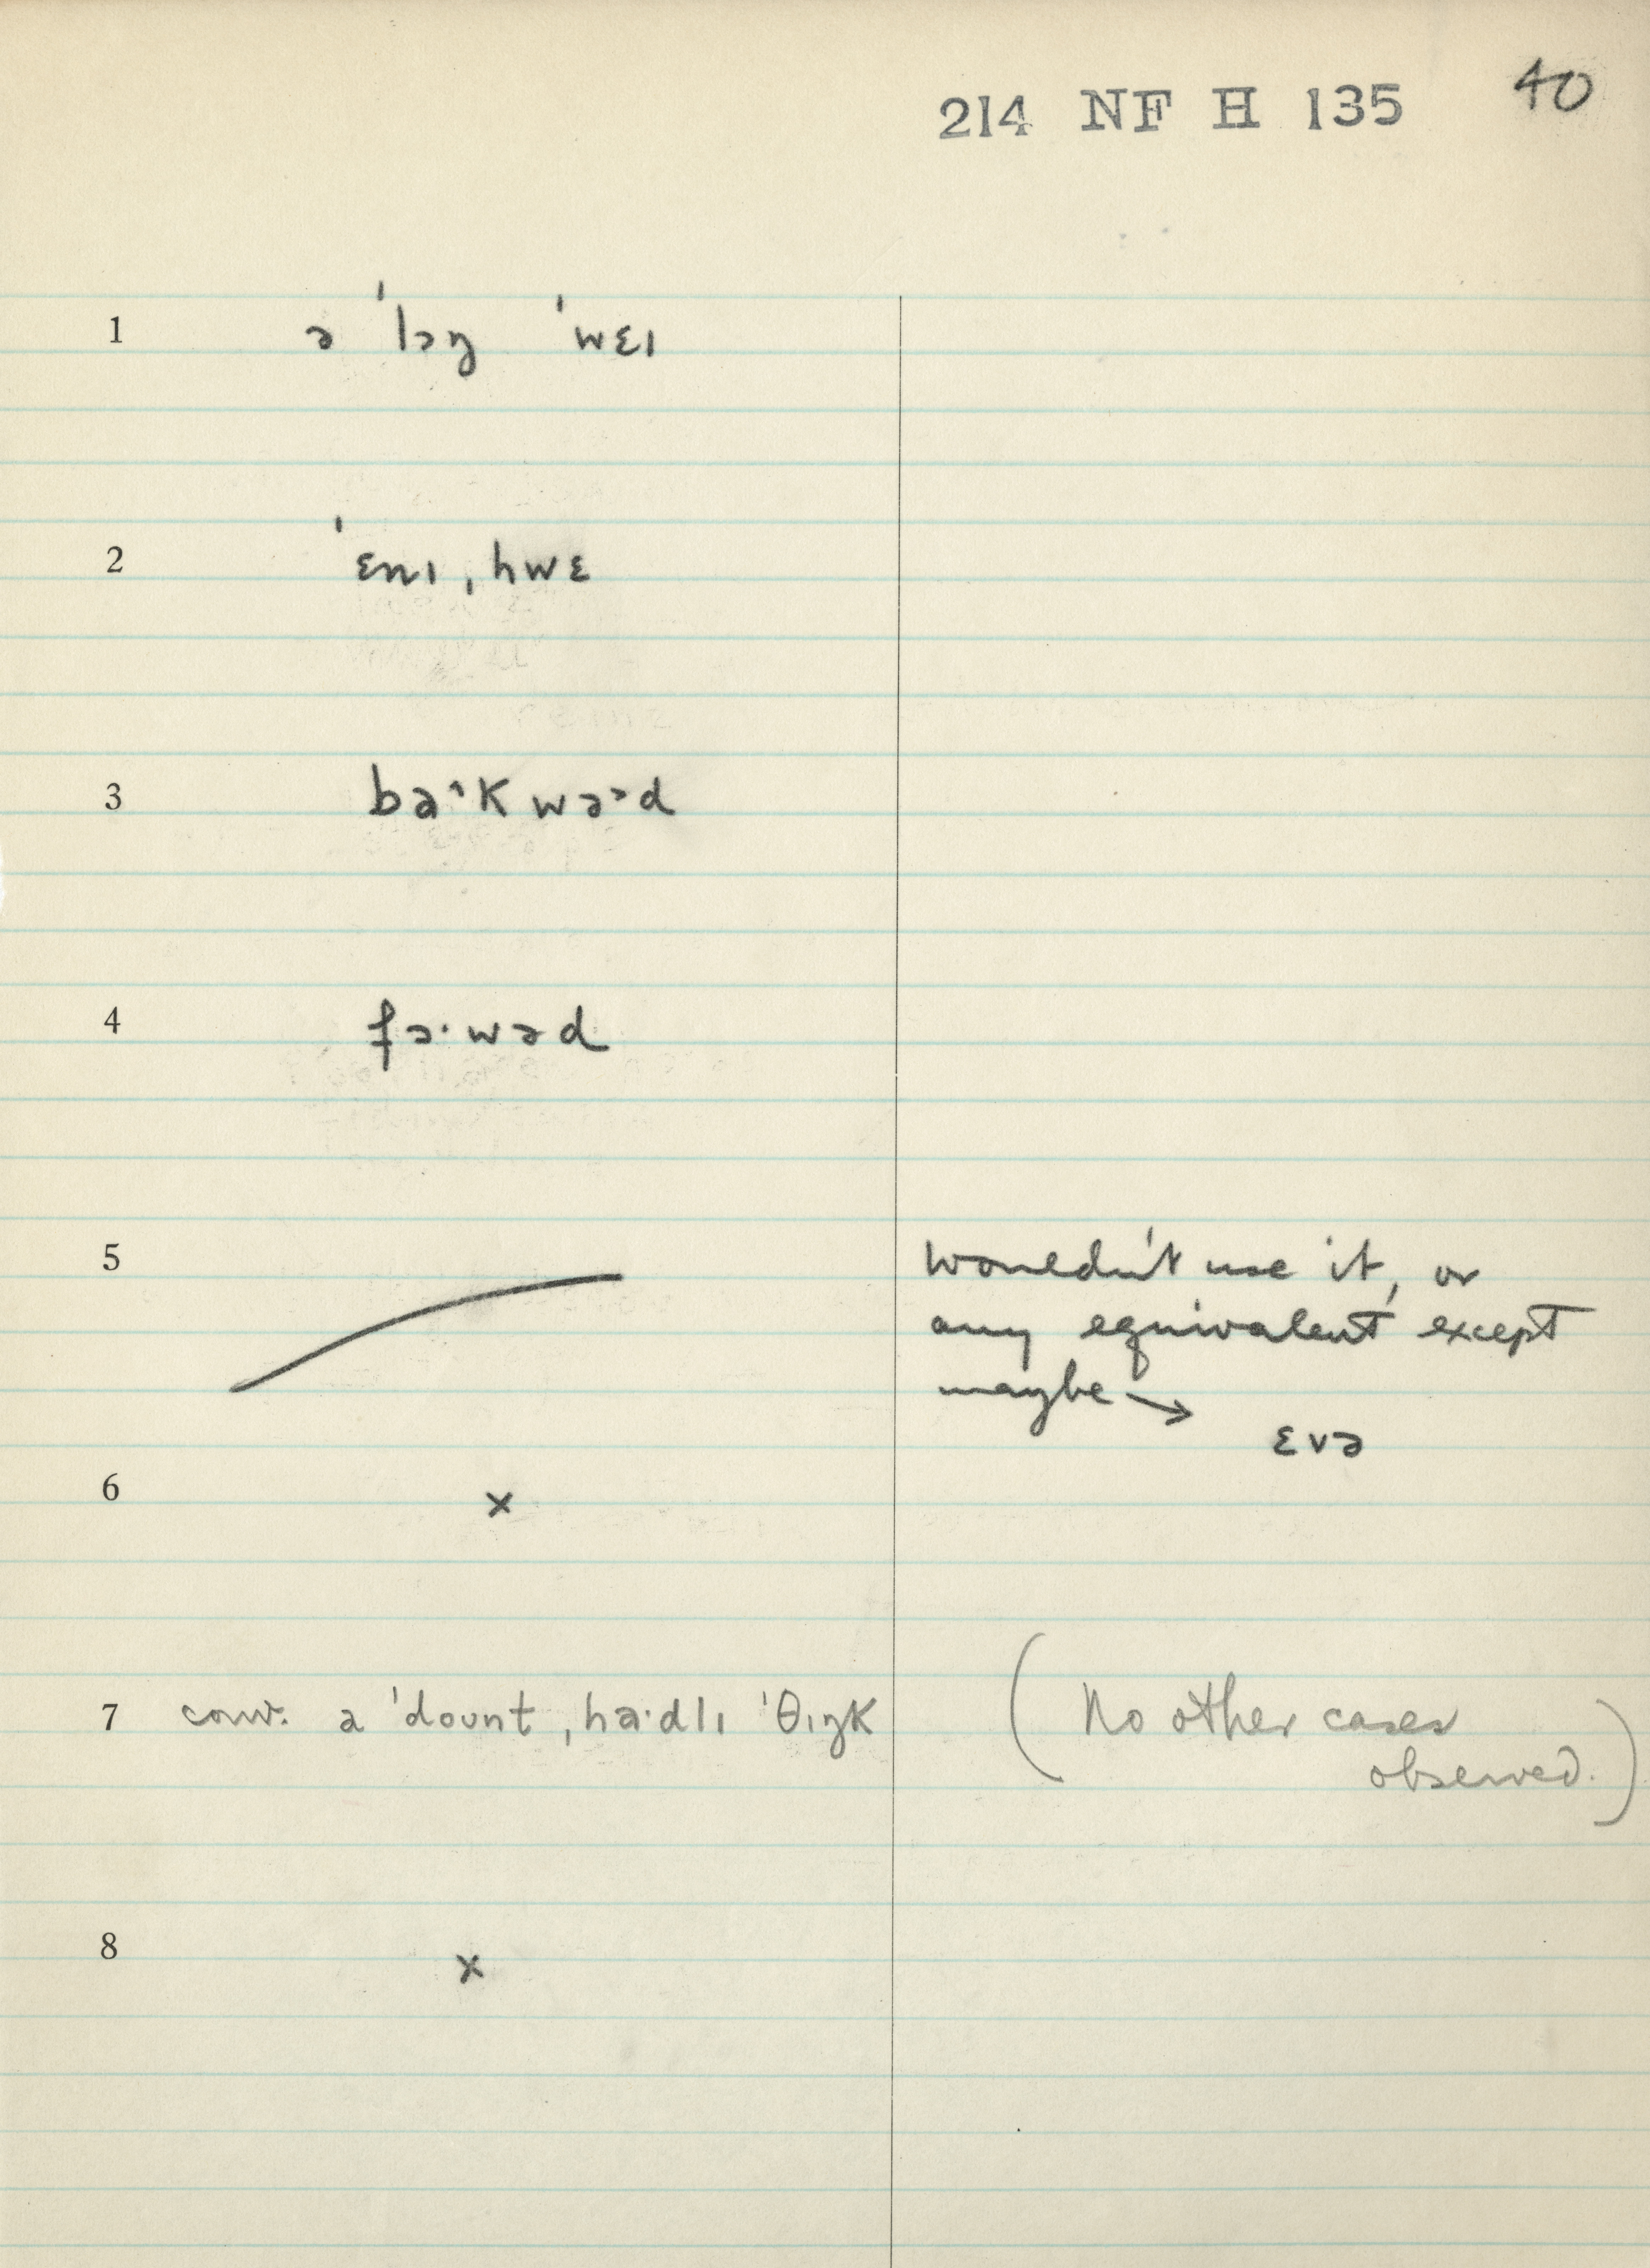 214 NF H 135 40
1 ə ˈlɔŋ ˈwɛɪ
2 ˈɛnɪˌhwɛ
3 ba˄kwə˃d
4 fɔ·wəd
5 wouldn't use it, or
any equivalent except
maybe →
ɛvə
6 ×
7 conv. a ˈdount ˌha·dlɪ ˈθɪŋk (No other cases
observed.)
8 ×